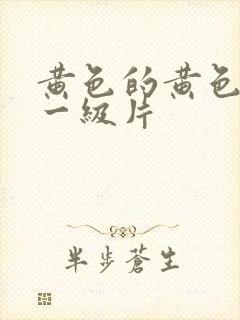 黄色的黄色
一级片
半步蒼生